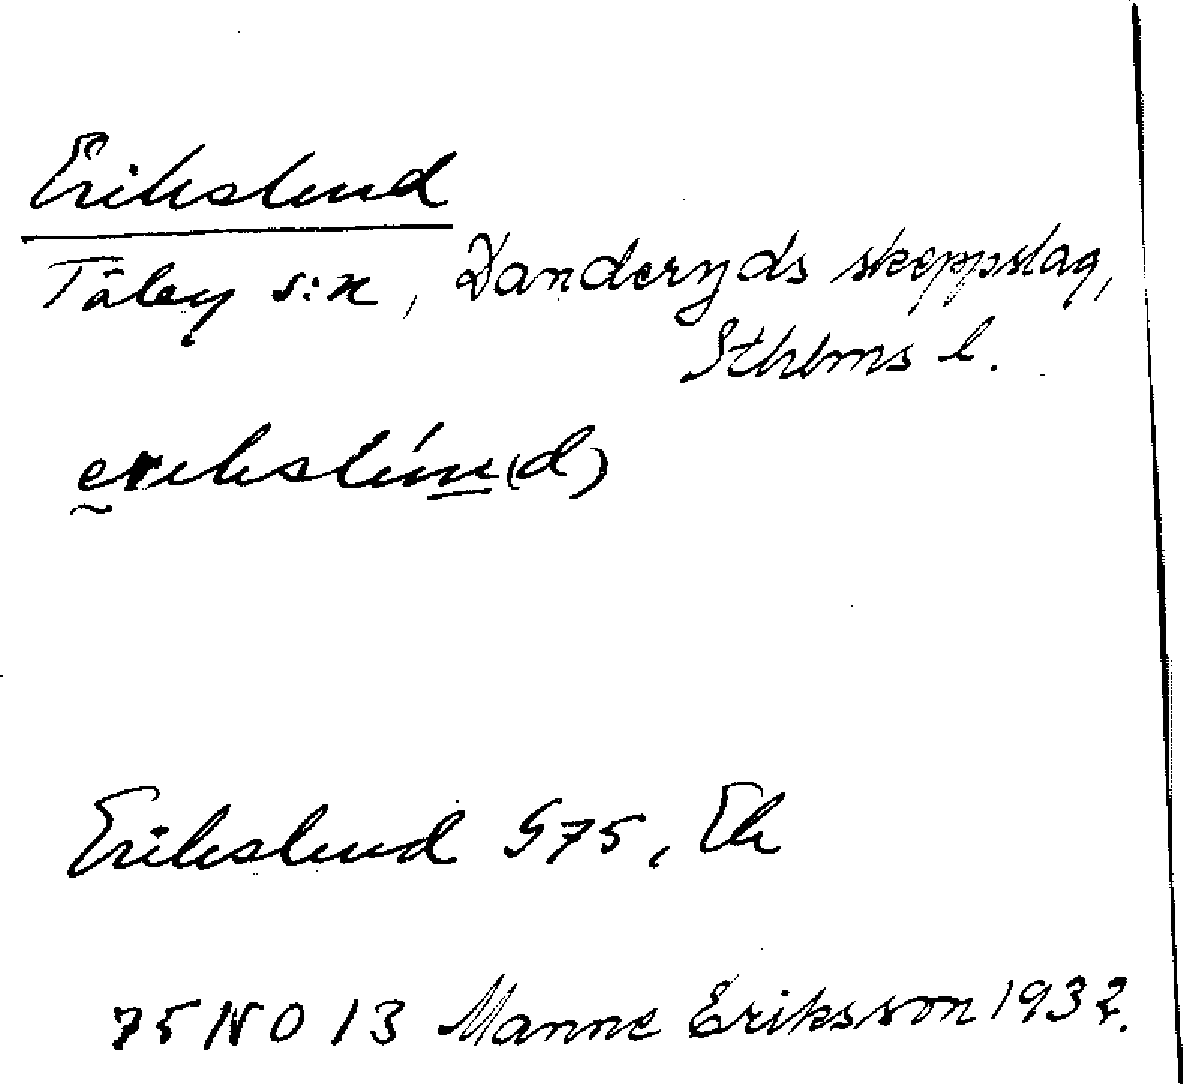 Erikslund
Täby s:n, Danderyds skeppslag,
Sthlms l.
erikslún(d)
Erikslund G75, Ek
75 NO 13 Manne Eriksson 1932.